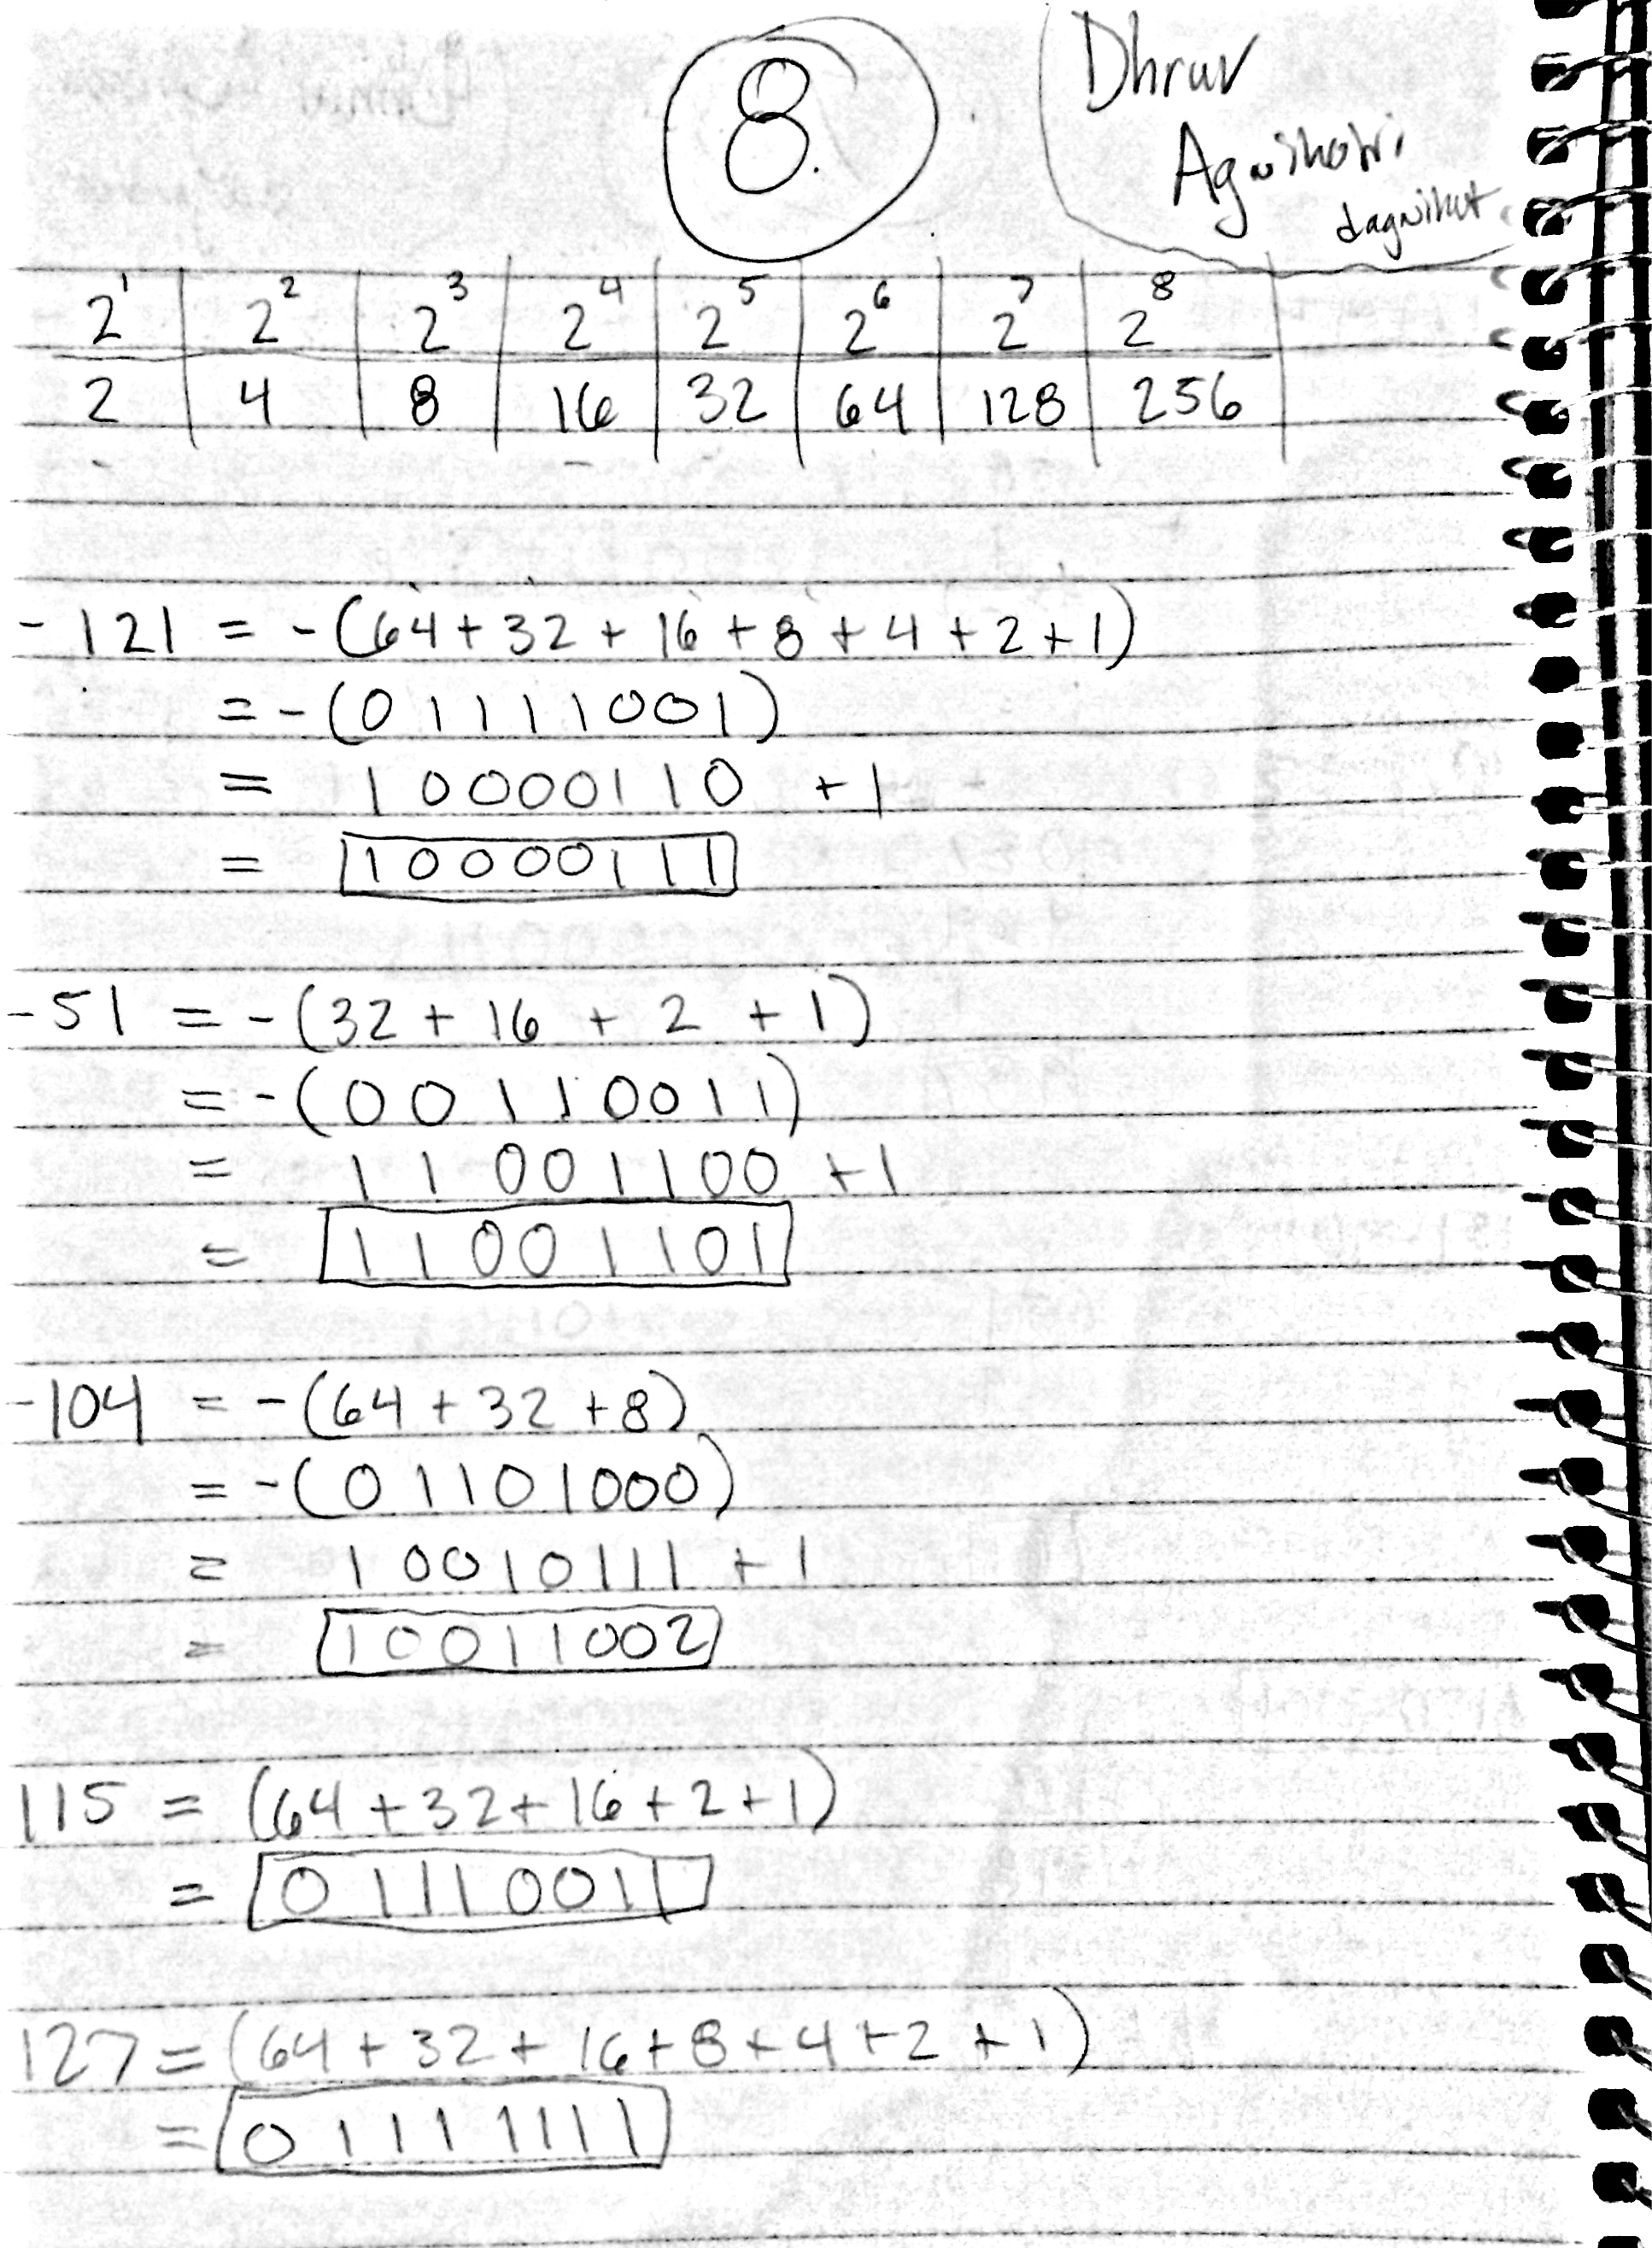 8.
Dhruv
Agnihotri
dagnihot
2^1 2^2 2^3 2^4 2^5 2^6 2^7 2^8
2 4 8 16 32 64 128 256
-121 = -(64+32+16+8+4+2+1)
= -(01111001)
= 10000110 +1
= 10000111
-51 = -(32+16+2+1)
= -(00110011)
= 11001100 +1
= 11001101
-104 = -(64+32+8)
= -(01101000)
= 10010111 +1
= 10011002
115 = (64+32+16+2+1)
= 01110011
127 = (64+32+16+8+4+2+1)
= 01111111